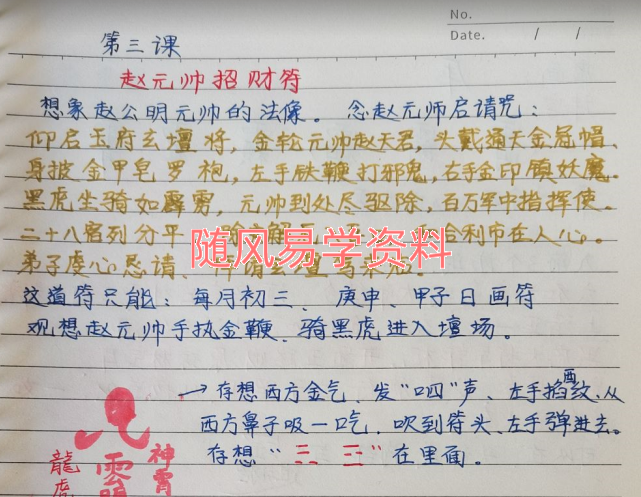 No.
Date. / /
第三课
赵元帅招财符
想象赵公明元帅的法像。念赵元师启请咒:
仰启玉府玄壇将,金轮元帅赵天君,头戴通天金冠帽、
身披金甲皂罗袍,左手铁鞭打邪鬼,右手金印镇妖魔。
黑虎坐骑如霹雳,元帅到处尽驱除,百万军中指挥使。
二十八宿列分平 合利市在人心。
随风易学资料
弟子虔心恳请、
这道符只能:每月初三、庚申、甲子日画符
观想赵元帅手执金鞭、骑黑虎进入壇场。
→存想西方金气、发“呬”声、左手掐酉纹、从
西方鼻子吸一口吃,吹到符头、左手弹进去。
存想“三、三”在里面。
神霄
龍虎